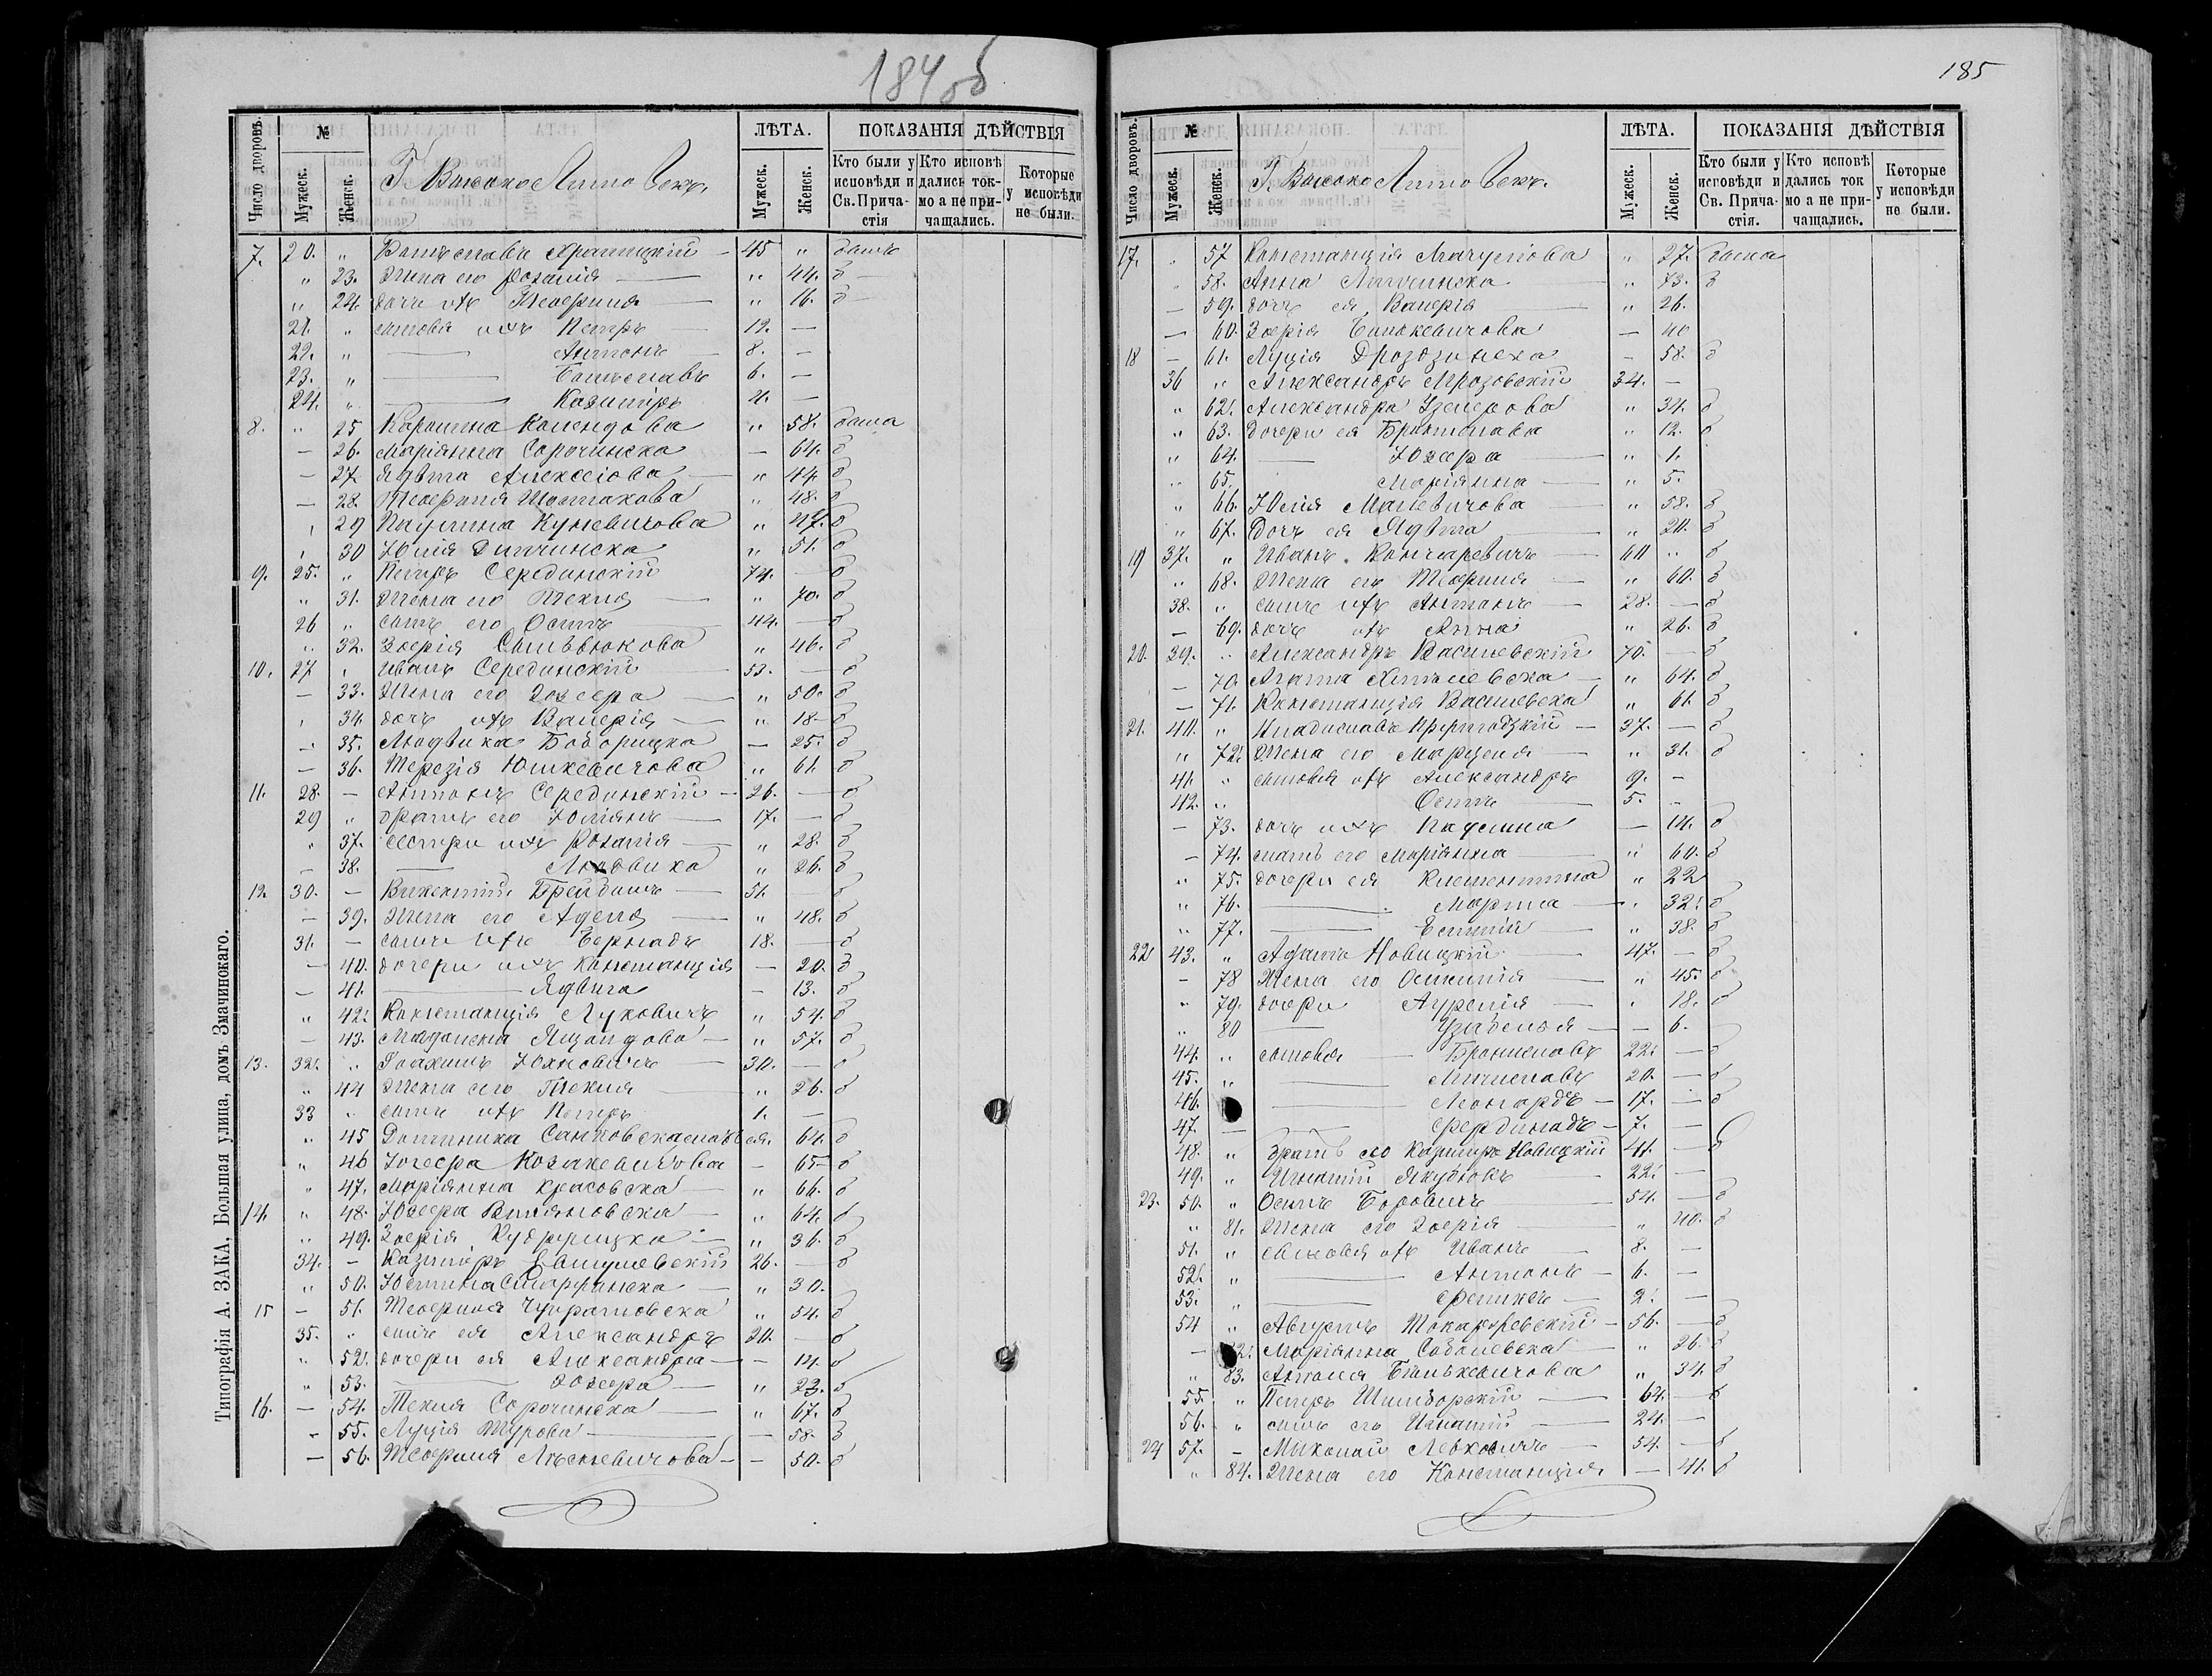 184 об
Число дворовъ. № ЛѢТА. ПОКАЗАНІЯ ДѢЙСТВІЯ
Мужеск. Женск. Г. Высоко Лито Векъ. Мужеск. Женск. Кто были у исповѣди и Св. Причастія Кто исповѣдались токмо а не причащались. Которые у исповѣди не были.
7. 20. " 45 " былъ
" 23. Жена его Розалія — " 44. б
" 24. дочь ихъ Теофиля — " 16. б
21. " сыновя ихъ Петръ — 12. —
22. " — Антонъ — 8. —
23. " — Болеславъ 6. —
24. " — Казимиръ —
8. " 25 Каролина " 58. была
— 26. Маріянна Сорочинска — 64. б
— 27. Ядвига Алексіова — " 44. б
— 28. Теофиля " 48. б
" 29 Паулина Куневичова " 47. б
" 30 Юлія " 51. б
9. 25. " Петръ Серединскій 74. — б
" 31. Жена его Текля — " 70. б
26 " сынъ его Осипъ — 44. — б
" 32. Зофія " 46. б
10. 27 " Иванъ Серединскій — 53. — б
— 33. Жена его Юзефа — " 50. б
" 34. дочь ихъ Валерія — " 18 б
" 35. Людвика — 25. б
— 36. Терезія Юшкевичова " 61. б
11. 28. — Антонъ Серединскій — 26. — б
29 " братъ его Юліянъ — 17. — б
" 37. сестры ихъ Розалія — " 28. б
— 38. — Людвика " 26. б
12. 30. — Викентій — 51. — б
— 39. Жена его Аделя — " 48. б
31. — сынъ ихъ Бернадъ 18. — б
— 40. дочери ихъ Констанція — 20. б
— 41. — Ядвига — 13. б
" 42. Констанція Луковичъ " 54. б
— 43. Магдалена — " 57. б
13. 32. " Іоахимъ Юхновичъ — 30. — б
" 44 Жена его Текля — " 26. б
33 " сынъ ихъ Петръ 1. —
" 45 Доминика 64. б
" 46 Юзефа Козакевичова — 65 б
" 47. Маріянна Красовска — " 66. б
14. " 48. Юзефа — " 64. б
" 49. Зофія — " 36. б
34. — Казиміръ 26. — б
" 50. Юстина — " 30.
15 — 51. Теофиля " 54. б
35. " сынъ ея Александръ 20. — б
" 52. дочери ея Александра — — 14. б
" 53. — Юзефа — " 23. б
16. — 54. Текля Сорочинска — " 67. б
— 55. Луція Турова — — 58. б
— 56. Теофиля — — 50. б
Типографія А. ЗАКА, Большая улица, домъ Змачинскаго.
185
Число дворовъ. № ЛѢТА. ПОКАЗАНІЯ ДѢЙСТВІЯ
Мужеск. Женск. Г. Высоко Лито Векъ. Мужеск. Женск. Кто были у исповѣди и Св. Причастія. Кто исповѣдались ток мо а не причащались. Которые у исповѣди не были.
17. " 57 Констанція " 27. была
" 58. Анна — " 73. б
— 59. дочь ея Валерія — " 26.
— 60. Зофія — 40
18 — 61. Луція — 58. б
36 " Александръ Мрозовскій 34. —
" 62. Александра " 34. б
" 63. дочери ея " 12. б
" 64. — Юзефа — " 1.
" 65. Маріянна — " 5.
" 66. Юлія " 58. б
" 67. Дочь ея Ядвига " 20. б
19 37. " Иванъ Кончаревичъ — 60 " б
" 68. Жена его Теофиля — " 60. б
38. " сынъ ихъ Антонъ — 28. — б
— 69. дочь ихъ Анна " 26. б
20. 39. " Александръ Василевскій 70. — б
— 70. Агата — " 64. б
— 71. Констанція Василевска " 61. б
21. 40. " Владиславъ — 37. — б
" 72. Жена его Марцеля — " 31. б
41. " сыновя ихъ Александръ 9. —
42. " Осипъ — 5. "
— 73. дочь ихъ Паулина — 14. б
— 74. мать его Маріянна — " 60. б
" 75. дочери ея Клементина " 22
" 76. — Марта — " 32. б
" 77. — " 38. б
22 43. " Адамъ Новицкій — 47. — б
— 78 Жена его — " 45. б
" 79. дочери Аурелія — " 18. б
" 80 — — — 6.
44. " сыновя — Брониславъ 22. — б
45. " — 20. — б
46. — Леонардъ — 17. — б
47. — — Фердинадъ — 7. —
48. " братъ его Казиміръ Новицкій 41. — б
49. " Игнатій 22. —
23. 50. " Осипъ — 54. — б
" 81. Жена его Зофія — " 40. б
51. " сыновя ихъ Иванъ — 8. —
52. " — Антонъ — 6. —
53. " — — 2. —
54 " — 56. — б
— Маріянна Соболевска — " 26. б
" 83. " 34. б
55. " Петръ — 64. — б
56. " сынъ его Игнатій — 24. —
24 57. — Миколай Левковичъ — 54. — б
" 84. Жена его Констанція — 41. б